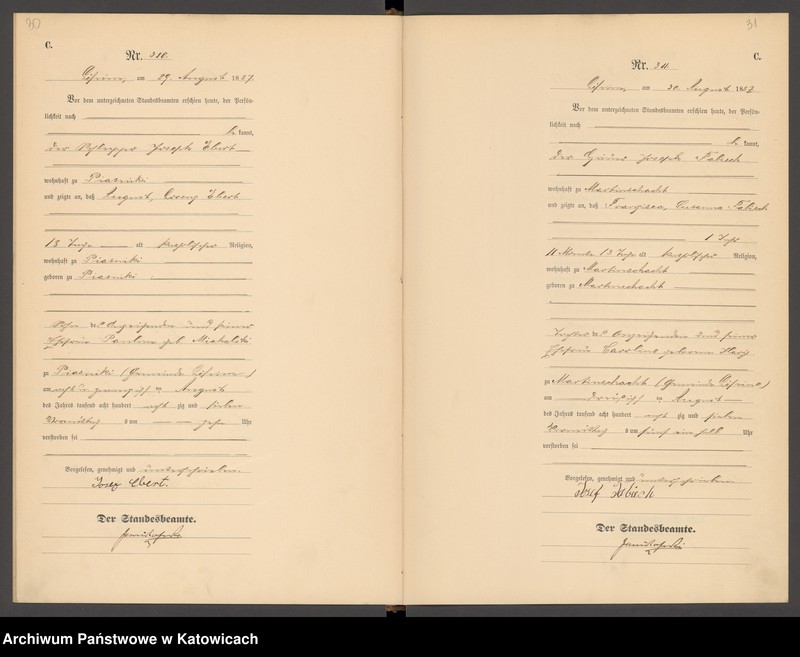 30
C.
Nr. 310.
am 29. August 1887.
Vor dem unterzeichneten Standesbeamten erschien heute, der Persön-
lichkeit nach
kannt,
der Schlepper Joseph Ebert
wohnhaft zu Piasniki
und zeigte an, daß August, Ebert
13 Jahre alt katholischer Religion,
wohnhaft zu Piasniki
geboren zu Piasniki
Sohn des Anzeigenden und seiner
Ehefrau Pauline geb.
zu Piasniki (Gemeinde
am acht und zwanzigsten August
des Jahres tausend acht hundert acht zig und sieben
Vormittags um zehn Uhr
verstorben sei
Vorgelesen, genehmigt und unterschrieben
Josef Ebert.
Der Standesbeamte.
31
C.
Nr. 311.
am 30. August 1887
Vor dem unterzeichneten Standesbeamten erschien heute, der Persön-
lichkeit nach
kannt,
der Joseph
wohnhaft zu Martinschacht
und zeigte an, daß Franzisca, Susanna
1 Jahr
11 Monate 13 Tage alt katholischer Religion,
wohnhaft zu Martinschacht
geboren zu Martinschacht
Tochter des Anzeigenden und seiner
Ehefrau Caroline geborene
zu Martinschacht (Gemeinde
am dreißigsten August
des Jahres tausend acht hundert acht zig und sieben
Vormittags um fünf ein halb Uhr
verstorben sei
Vorgelesen, genehmigt und unterschrieben
Josef
Der Standesbeamte.
Archiwum Państwowe w Katowicach